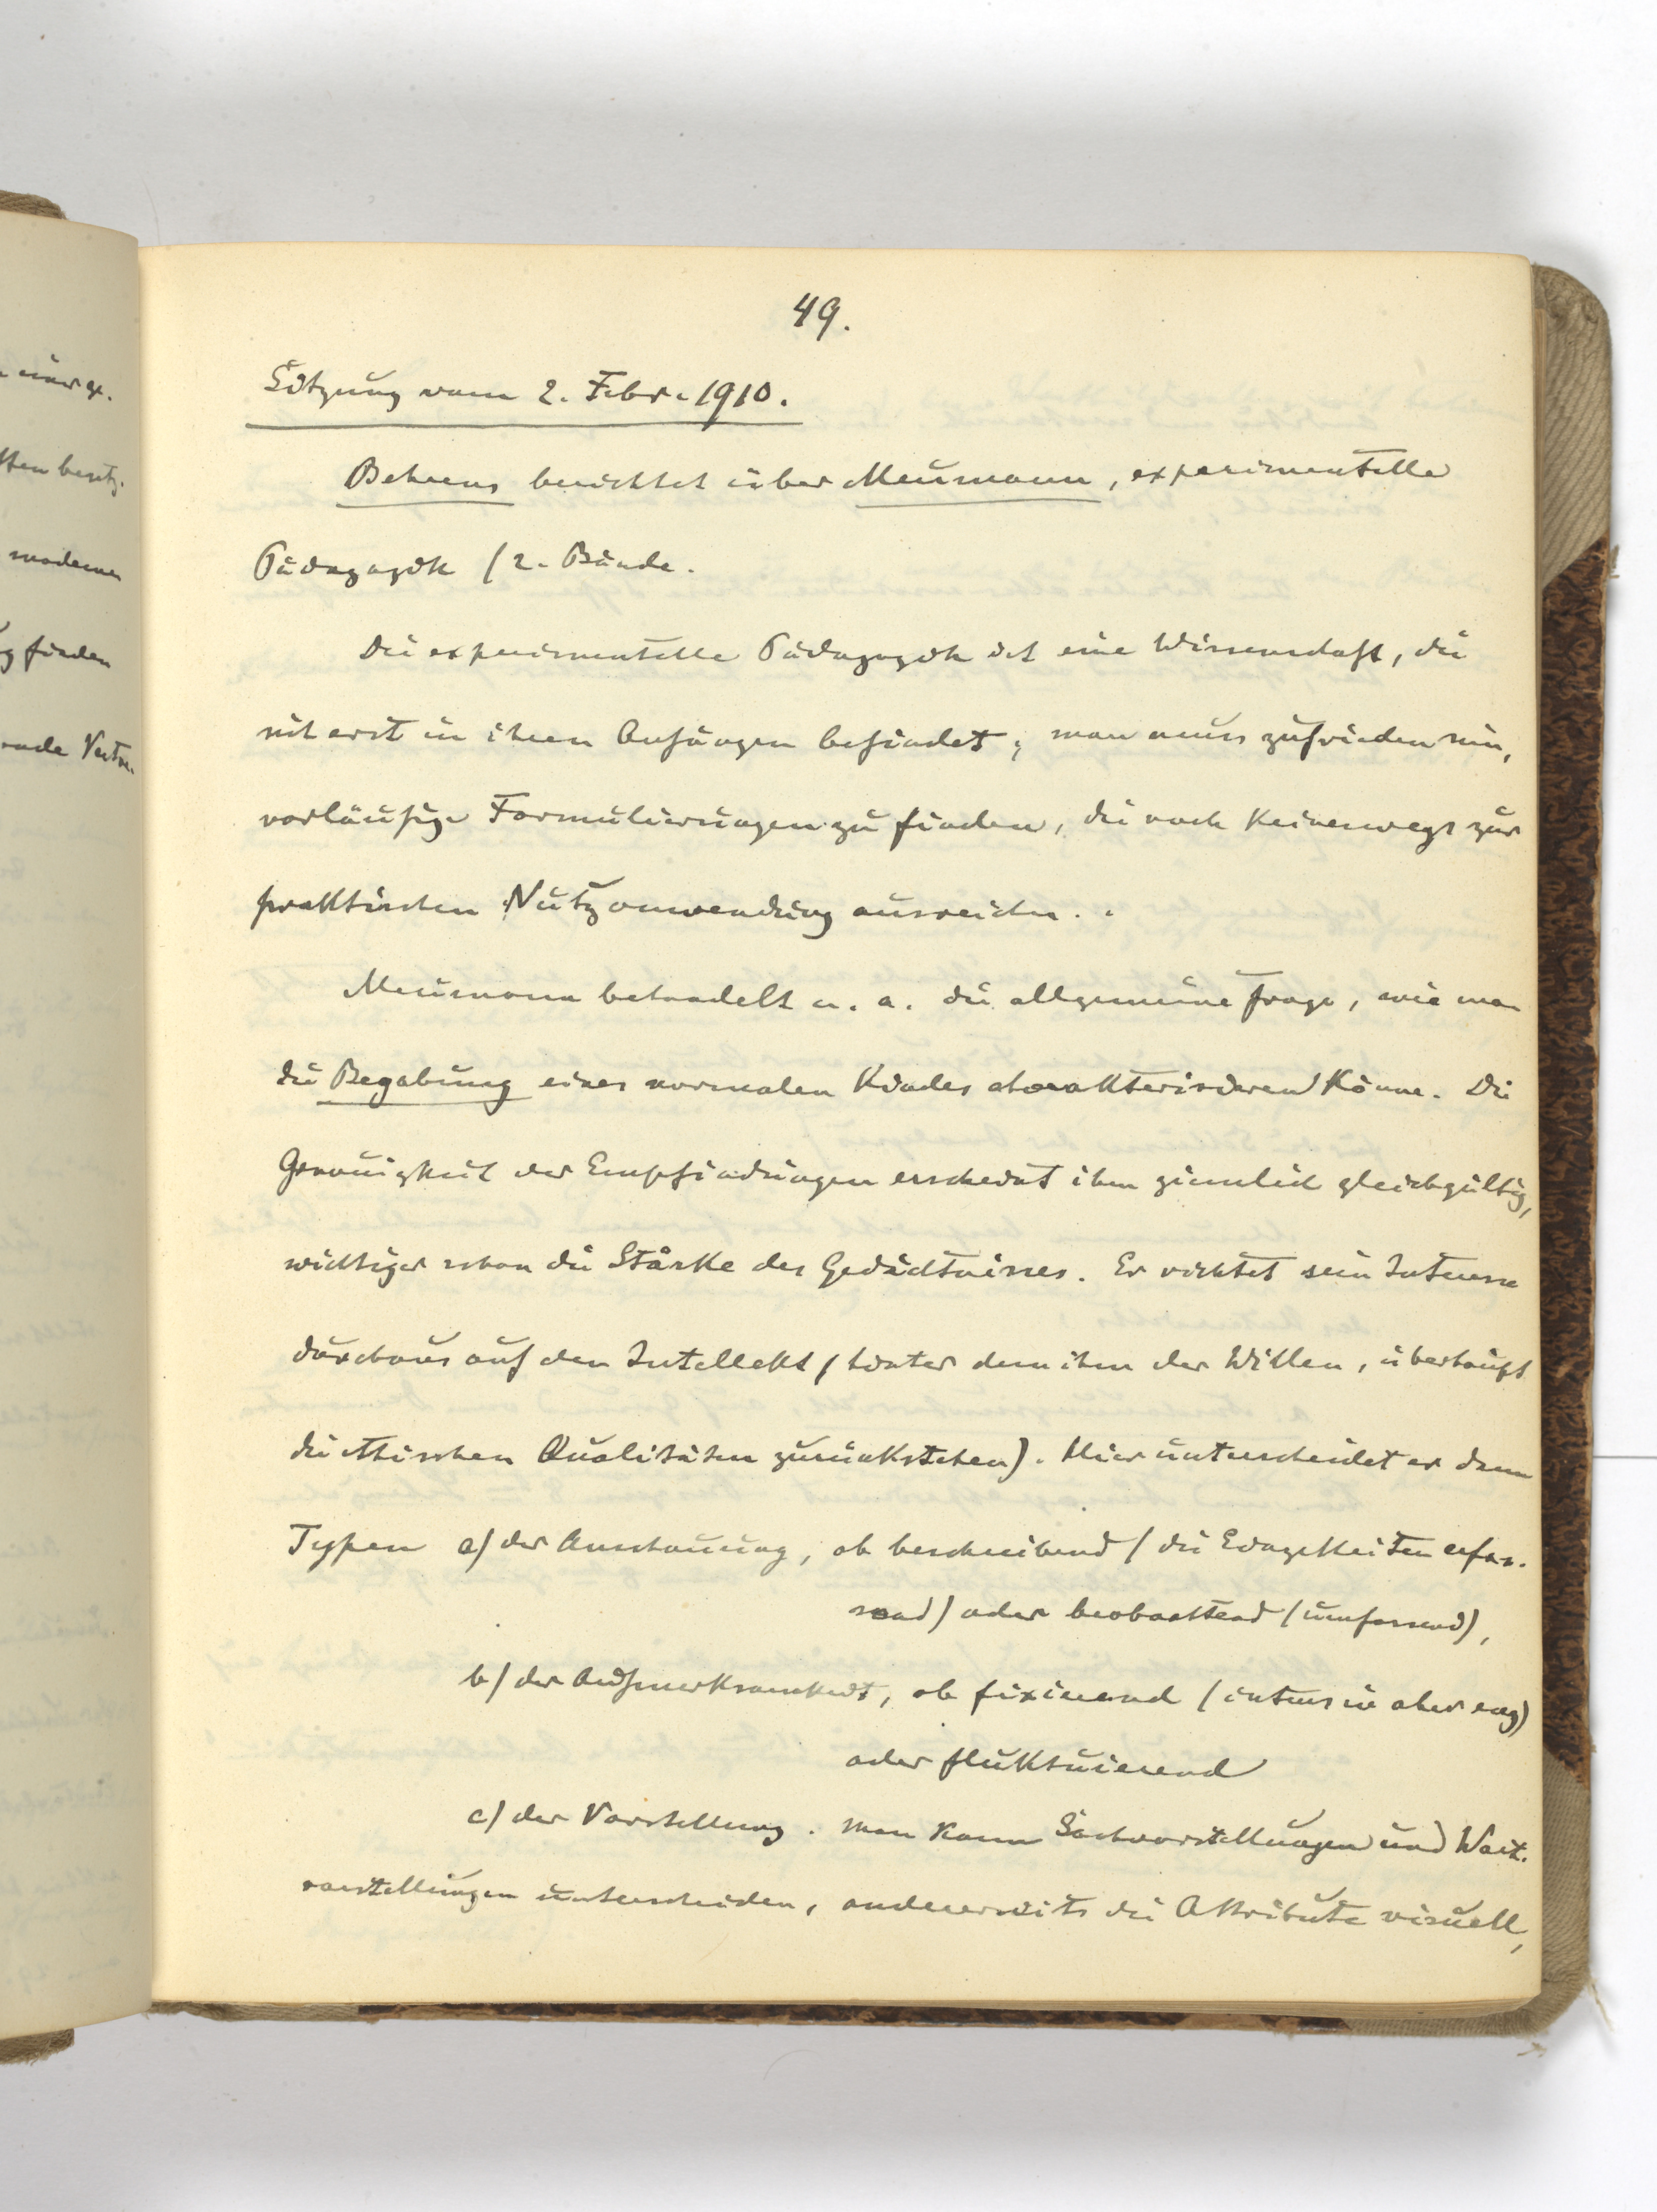 49.
Sitzung vom 2. Febr. 1910.
Behrens berichtet über Meumann, experimentelle
Pädagogik / 2. Bände.
Die experimentelle Pädagogik ist eine Wissenschaft, die
sich erst in ihren Anfängen befindet; man muss zufrieden sein,
vorläufige Formulierungen zu finden, die noch keineswegs zur
praktischen Nutzanwendung ausreichen.
Meumann behandelt u. a. die allgemeine Frage, wie man
die Begabung eines normalen Kindes charakterisieren könne. Die
Genauigkeit der Empfindungen erscheint ihm ziemlich gleichgültig,
wichtiger schon die Stärke des Gedächtnisses. Er richtet sein Interesse
durchaus auf den Intellekt (hinter dem ihm der Willen, überhaupt
die ethischen Qualitäten zurückstehen). Hier unterscheidet er dann
Typen a) der Anschauung, ob beschreibend (die Einzelheiten erfas-
send) oder beobachtend (umfassend),
b) der Aufmerksamkeit, ob fixierend (intensiv aber eng)
oder fluktuierend
c) der Vorstellung. Man kann Sachvorstellungen und Wort-
vorstellungen unterscheiden, andererseits die Attribute visuell,
einer
besitz.
moderner
finden